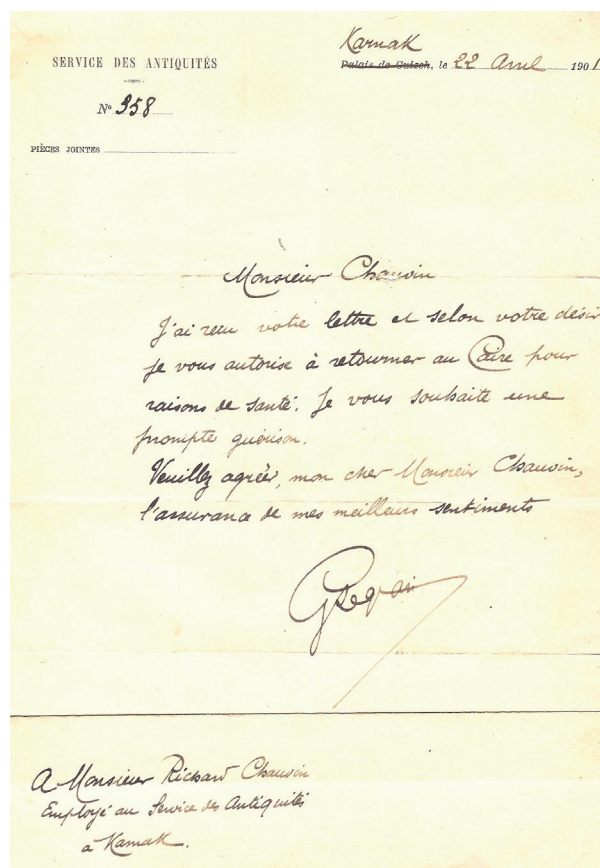 Karnak
SERVICE DES ANTIQUITÉS
Palais de Guizeh, le 22 Avril 1901
N° 958
PIÈCES JOINTES
Monsieur Chauvin
J'ai reçu votre lettre et selon votre désir
je vous autorise à retourner au Caire pour
raisons de santé. Je vous souhaite une
prompte guérison.
Veuillez agréer, mon cher Monsieur Chauvin,
l'assurance de mes meilleurs sentiments
GLegrain
A Monsieur Richard Chauvin
Employé au Service des Antiquités
à Karnak.